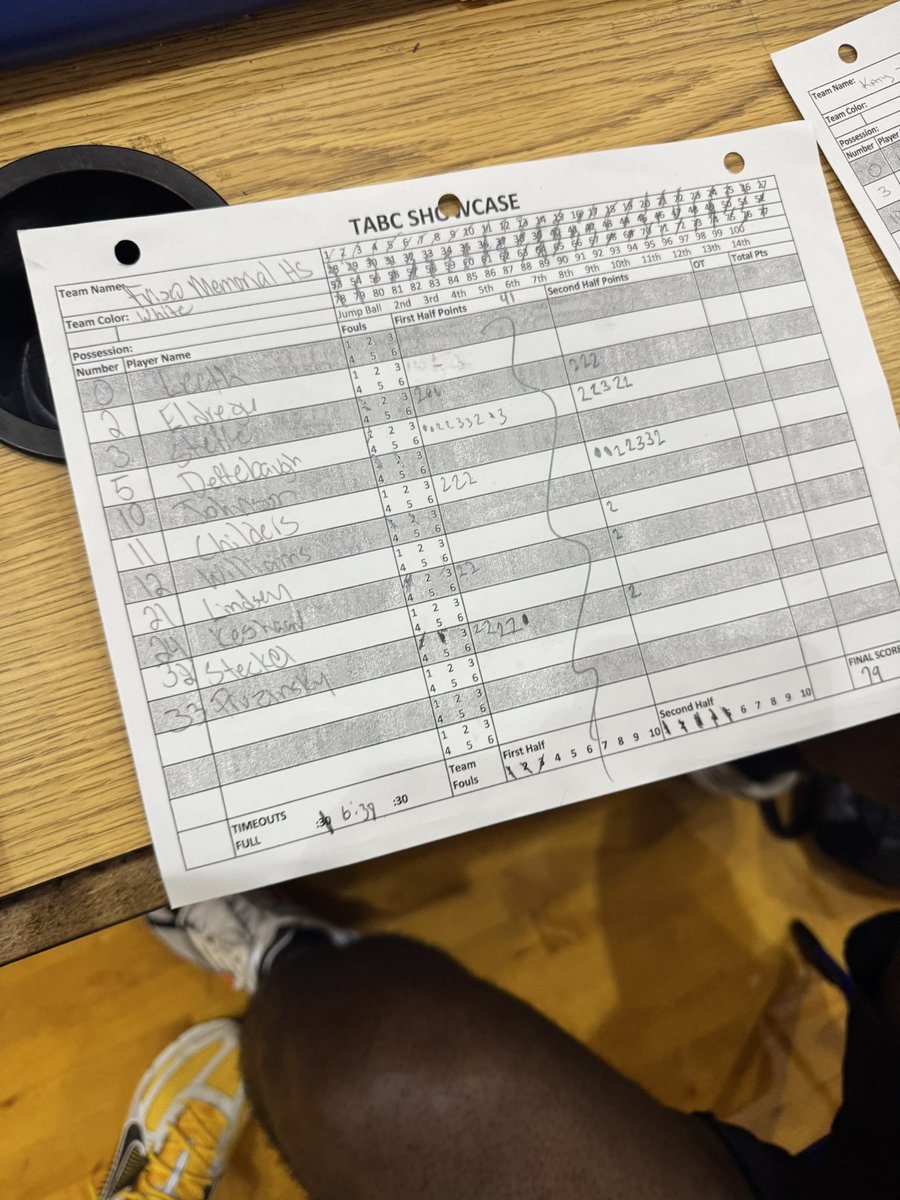 TABC SHOWCASE
Team Name: Frisco Memorial HS
1 2 3 4 5 6 7 8 9 10 11 12 13 14 15 16 17 18 19 20 21 22 23 24 25 26 27
28 29 30 31 32 33 34 35 36 37 38 39 40 41 42 43 44 45 46 47 48 49 50 51 52
53 54 55 56 57 58 59 60 61 62 63 64 65 66 67 68 69 70 71 72 73 74 75 76 77
78 79 80 81 82 83 84 85 86 87 88 89 90 91 92 93 94 95 96 97 98 99 100
Team Color: White
Jump Ball 2nd 3rd 4th 5th 6th 7th 8th 9th 10th 11th 12th 13th 14th
Possession:
Fouls First Half Points 41 Second Half Points OT Total Pts
Number Player Name
0 1 2 3 4 5 6
2 Eldredge 1 2 3 4 5 6 222
3 1 2 3 4 5 6 22322
5 Deffebaugh 1 2 3 4 5 6
10 Johnson 1 2 3 4 5 6 22332
11 Childers 1 2 3 4 5 6 222
12 Williams 1 2 3 4 5 6 2
21 Lindsey 1 2 3 4 5 6 2
24 1 2 3 4 5 6 22
32 Steckel 1 2 3 4 5 6 2
33 1 2 3 4 5 6 2222
1 2 3 4 5 6
1 2 3 4 5 6
1 2 3 4 5 6
TIMEOUTS :30 6:39 :30
FULL
Team Fouls
First Half
1 2 3 4 5 6 7 8 9 10
Second Half
1 2 3 4 5 6 7 8 9 10
FINAL SCORE
79
Team Name: Katy
Team Color:
Possession:
Number Player
0
3